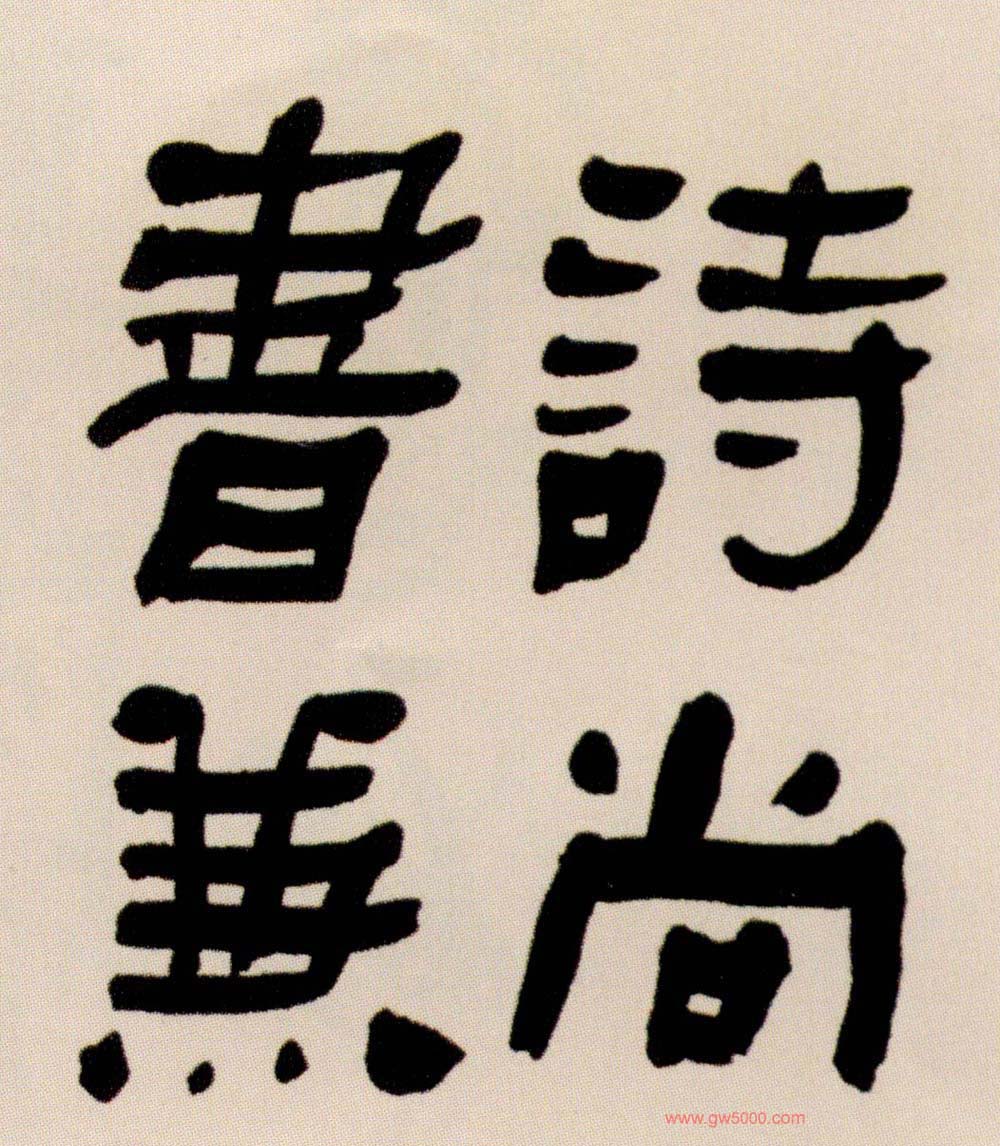 詩尚
書兼
www.gw5000.com